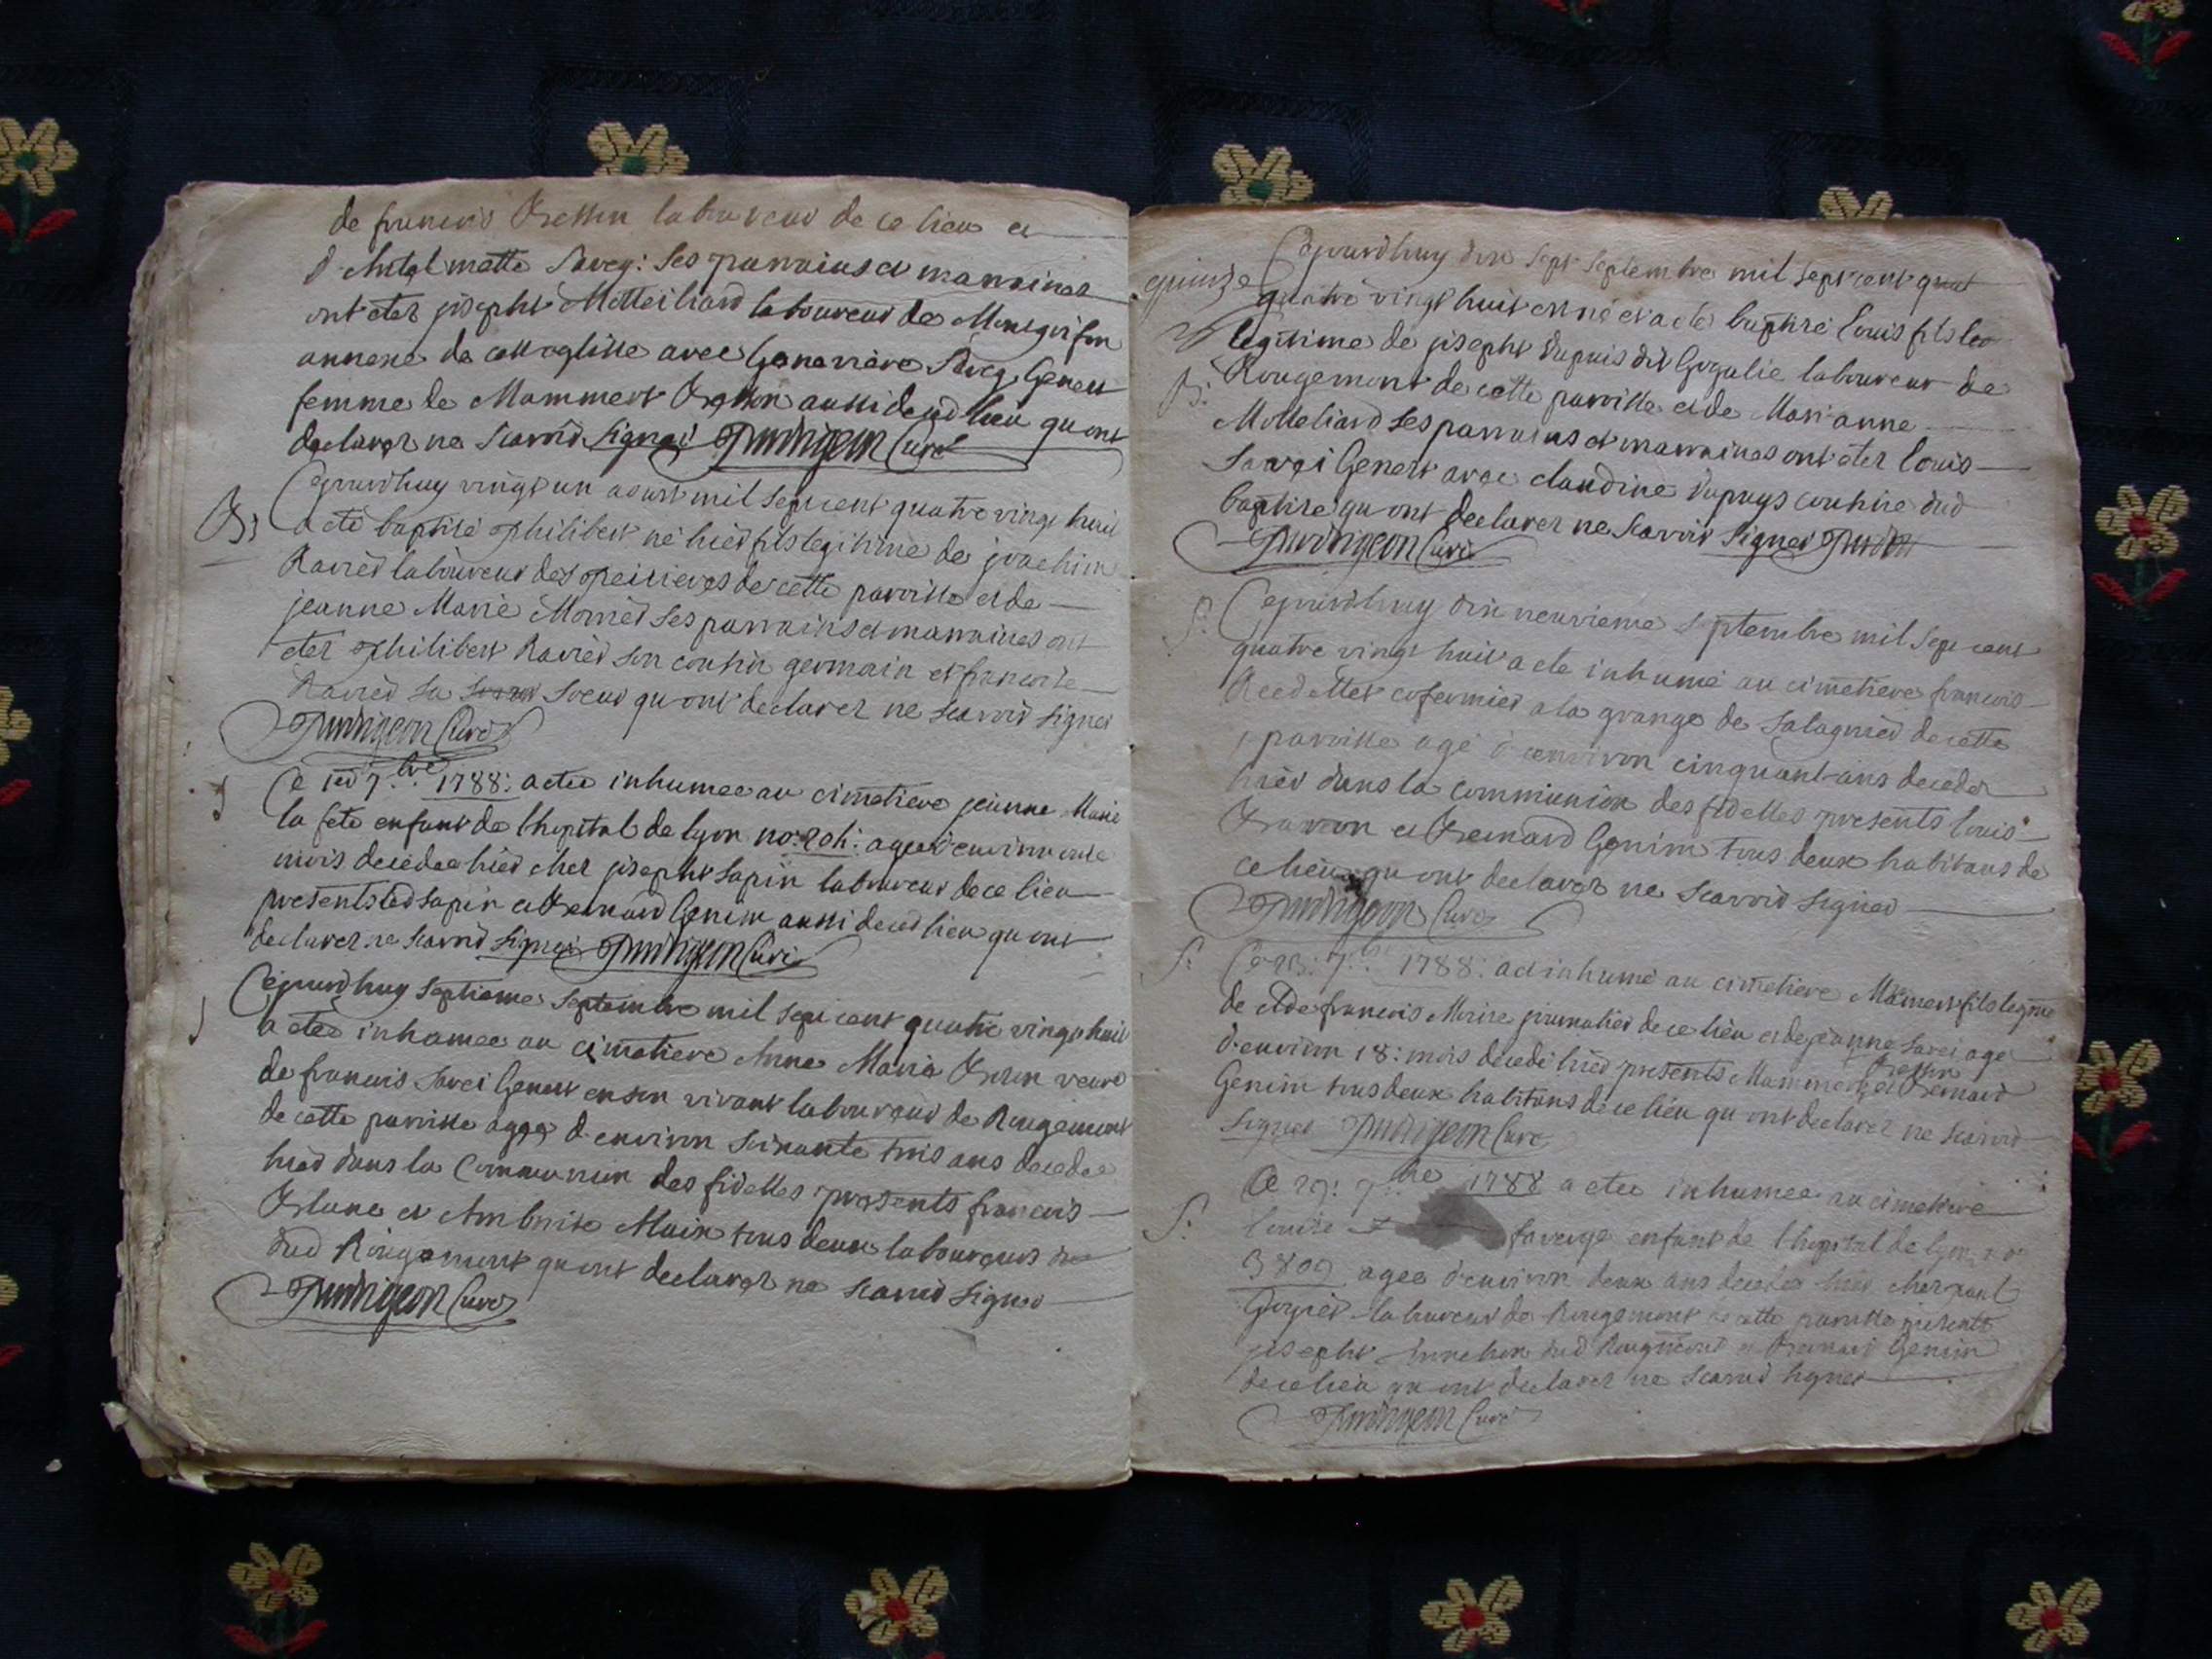 de francois laboureur de ce lieu et
Savey: ses parrains et marraines
ont eter joseph Motteiliard laboureur de
annexe de avec Genevieve Savey Genest
femme de Mammert aussi decedlieu qu ont
declarer ne scavoir signer Curé
Cejourdhuy vingt un aoust mil sept cent quatre vingt huit
B: a eté baptisé philibert né hier fils legitime de joachim
Ravier laboureur des de cette paroisse et de
jeanne Marie Mornier ses parrains et marraines ont
eter philibert Ravier son cousin germain et francoise
Ravier sa soeur qu ont declarer ne scavoir signer
Curé
Ce 1er 7.bre 1788: a eteé inhumee au cimetiere jeanne Marie
la fete enfant de lhopital de lyon no: ageé d'environ onze
mois decedeé hier chez joseph Sapin laboureur de ce lieu
presents led sapin et Bernard Genin aussi decedlieu qu ont
declarer ne scavoir signer Curé
Cejourdhuy septieme septembre mil sept cent quatre vingt huit
a eteé inhumeé au cimetiere Anne Marie veuve
de francois Savei Genest en son vivant laboureur de Rougemont
de cette paroisse ageé d'environ soixante trois ans decedeé
hier dans la Communion des fidelles presents francois
et Ambroise tous deux laboureurs du
dud Rougemont qu ont declarer ne scavoir signer
Curé
Cejourdhuy dix sept septembre mil sept cent quat
quinze quatre vingt huit est né et a eté baptisé louis fils leg
legitime de joseph dupuis dit laboureur de
B: Rougemont de cette paroisse et de Marianne
Motteliard ses parrains et marraines ont eter louis
Savei Genest avec claudine dupuys cousine dud
baptisé qu ont declarer ne scavoir signer
Curé
S: Cejourdhuy dix neuvieme septembre mil sept cent
quatre vingt huit a eté inhumé au cimetiere francois
cofermier a la grange de Salagnier de cette
paroisse agé d'environ cinquant-ans deceder
hier dans la communion des fidelles presents louis
et Bernard Genin tous deux habitans de
ce lieu qu ont declarer ne scavoir signer
Curé
S: Ce 23: 7.bre 1788: a eté inhumé au cimetiere Mamert fils legme
de francois journalier de ce lieu et de jeanne Savei agé
d'environ 18: mois decedé hier presents Mammert et Bernard
Genin tous deux habitans de ce lieu qu ont declarer ne scavoir
signer Curé
Ce 29: 7bre 1788 a eteé inhumeé au cimetiere
S: louise faverge enfant de lhopital de lyon no
3809 ageé d'environ deux ans decedeé hier chez paul
laboureur de Rougemont de cette paroisse presents
joseph dud Rougemont et Bernard Genin
de ce lieu qu ont declarer ne scavoir signer
Curé